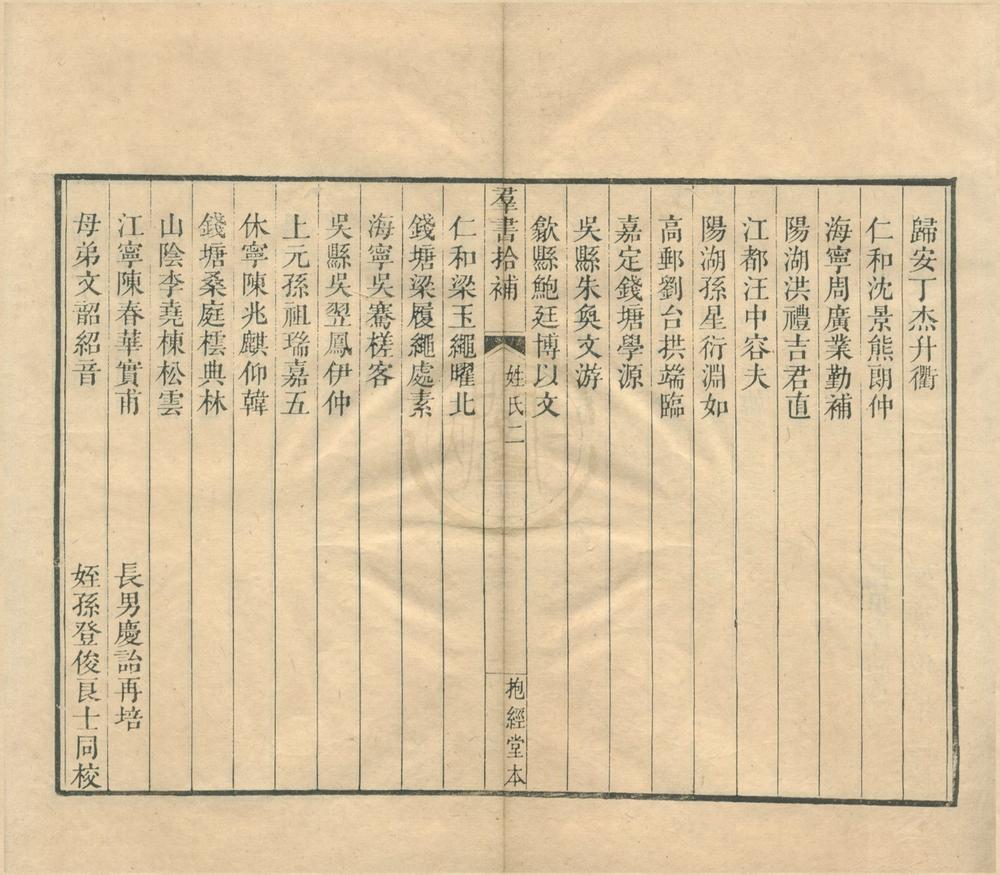 歸安丁杰升衢
仁和沈景熊朗仲
海寧周廣業勤補
陽湖洪禮吉君直
江都汪中容夫
陽湖孫星衍淵如
高郵劉台拱端臨
嘉定錢塘學源
吳縣朱奐文游
歙縣鮑廷博以文
羣書拾補
姓氏二
抱經堂本
仁和梁玉繩曜北
錢塘梁履繩處素
海寧吳騫槎客
吳縣吳翌鳳伊仲
上元孫祖瑞嘉五
休寧陳兆麒仰韓
錢塘桑庭橒典林
山陰李堯棟松雲
江寧陳春華實甫
長男慶詒再培
母弟文韶紹音
姪孫登俊良士同校